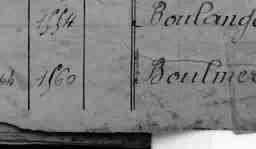 1554 Boulang
1560 Boulmer